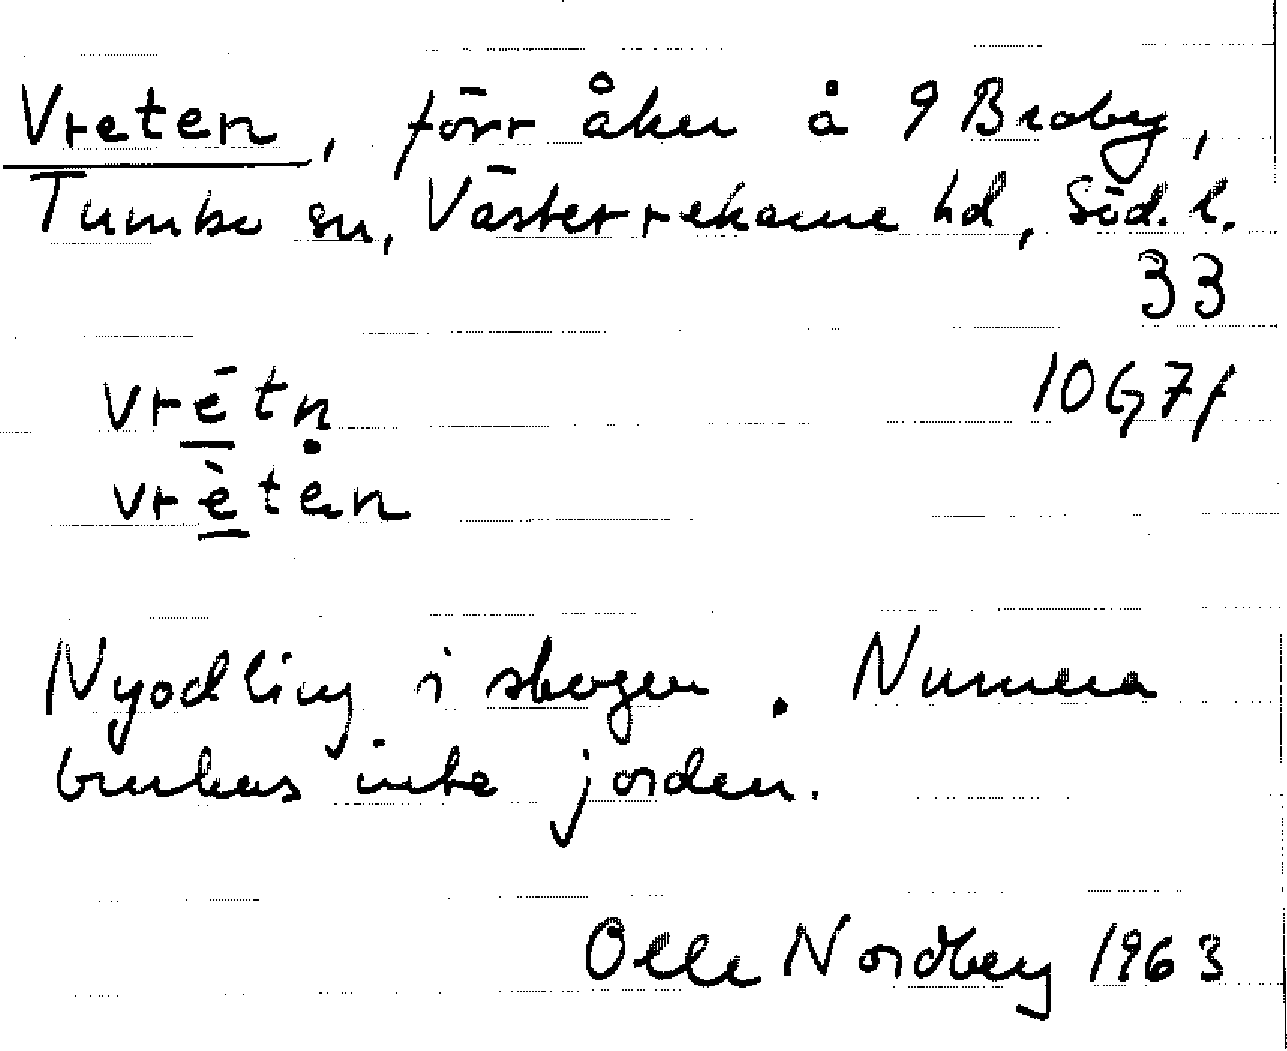 Vreten, förr åker å 9 Broby,
Tumbo sn, Västerrekarne hd, Söd. l.
33
10G7f
vrētṇ
vrètan
Nyodling i skogen. Numera
brukas inte jorden.
Olle Nordberg 1963